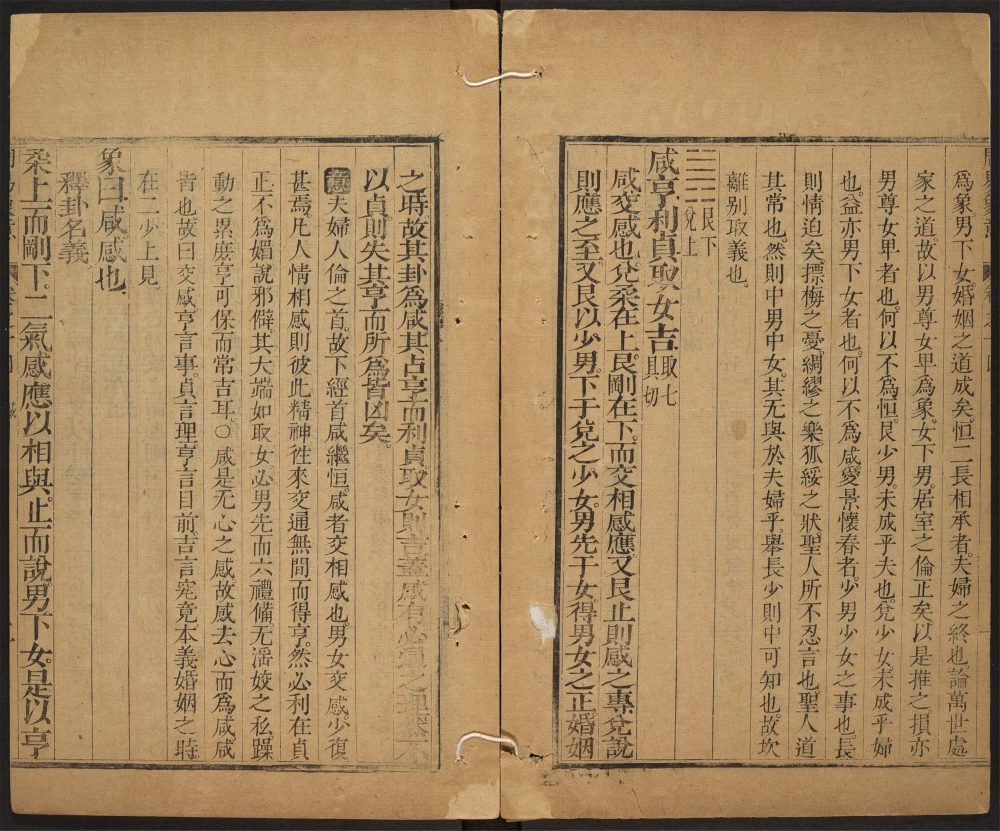 爲象男下女婚姻之道成矣恒二長相承者夫婦之終也論萬世處
家之道故以男尊女卑爲象女下男居室之倫正矣以是推之損亦
男尊女卑者也何以不爲恒艮少男未成乎夫也兌少女未成乎婦
也益亦男下女者也何以不爲咸愛景懷春者少男少女之事也長
則情迫矣摽梅之憂綢繆之樂狐綏之狀聖人所不忍言也聖人道
其常也然則中男中女其无與於夫婦乎舉長少則中可知也故坎
離別取義也
艮下
兌上
咸亨利貞取女吉
取七
具切
咸交感也兌柔在上艮剛在下而交相感應又艮止則感之專兌說
則應之至又艮以少男下于兌之少女男先于女得男女之正婚姻
之時故其卦爲咸其占亨而利貞取女則吉蓋感有必通之理
以貞則失其亨而所爲皆凶矣
意夫婦人倫之首故下經首咸繼恒咸者交相感也男女交感少復
甚焉凡人情相感則彼此精神徃來交通無閒而得亨然必利在貞
正不爲媚說邪僻其大端如取女必男先而六禮備无淫姣之私躁
動之累庶亨可保而常吉耳○咸是无心之感故感去心而爲咸咸
皆也故曰交感亨言事貞言理亨言目前吉言究竟本義婚姻之時
在二少上見
彖曰咸感也
釋卦名義
柔上而剛下二氣感應以相與止而說男下女是以亨